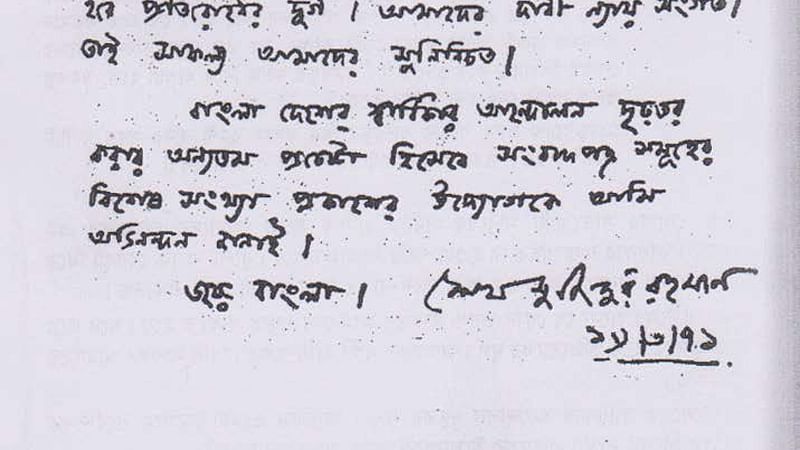 হবে প্রতিরোধের দুর্গ। আমাদের দাবী ন্যায় সংগত।
তাই সাফল্য আমাদের সুনিশ্চিত।
বাংলা দেশের স্বাধিকার আন্দোলন দৃঢ়তর
করার অন্যতম প্রচেষ্টা হিসেবে সংবাদপত্র সমূহের
বিশেষ সংখ্যা প্রকাশের উদ্যোগকে আমি
অভিনন্দন জানাই।
জয় বাংলা। শেখ মুজিবুর রহমান
২২/৩/৭১